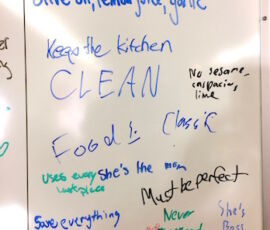 olive oil, lemon juice, garlic
Keeps the kitchen
CLEAN
No sesame,
lime
Food is Classic
uses every
She's the mom
Must be perfect
Save everything
Never
She's
Boss